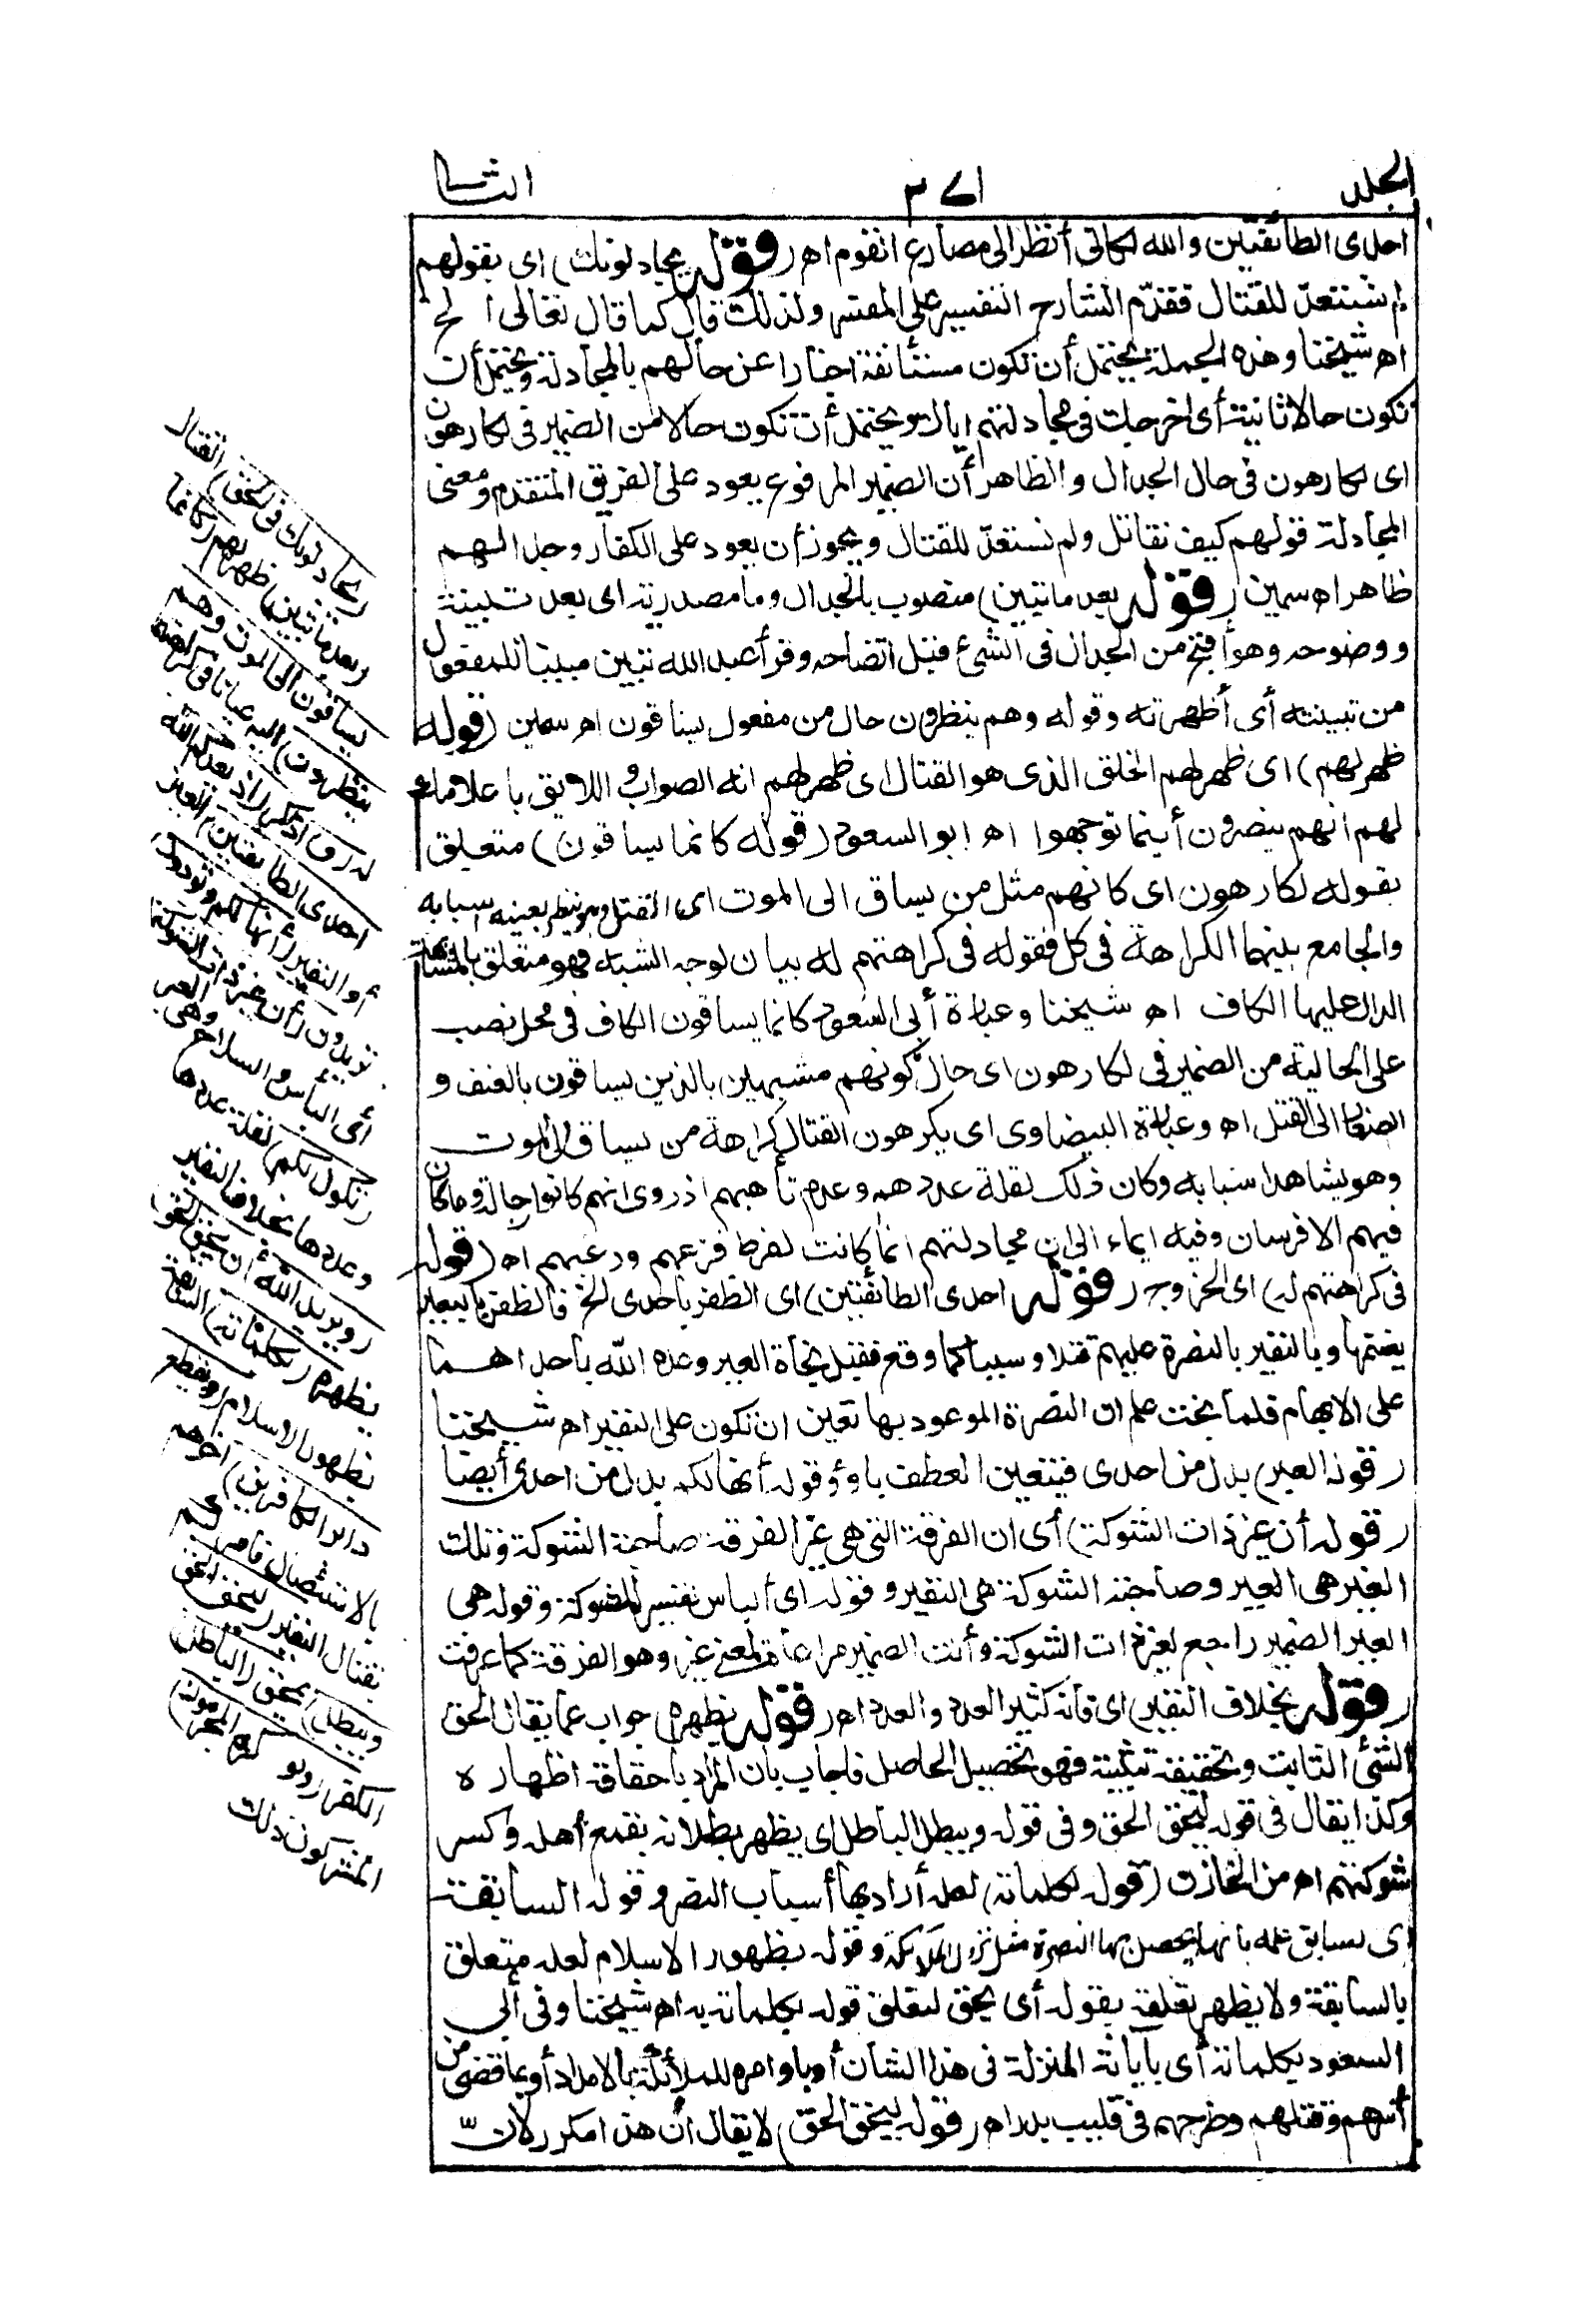 الجلد
الثا
احدى الطائفتين والله لكأني أنظر الى مصارع القوم اهـ (قوله يجادلونك) اى بقولهم
لم نستعدّ للقتال فقدّم الشارح التفسير على المفسر ولذلك قال كما قال تعالى الخ
اهـ شيخنا وهذه الجملة يحتمل أن تكون مستأنفة اخبارا عن حالهم بالمجادلة ويحتمل أن
تكون حالا ثانية أى اخرجك فى مجادلتهم اياك ويحتمل أن تكون حالا من الضمير فى لكارهون
اى لكارهون فى حال الجدال والظاهر أن الضمير المرفوع يعود على الفريق المتقدم ومعنى
المجادلة قولهم كيف نقاتل ولم نستعدّ للقتال ويجوز أن يعود على الكفار وجدالهم
ظاهر اهـ سمين (قوله بعد ما تبين) منصوب بالجدال وما مصدرية اى بعد تبينه
ووضوحه وهو أقبح من الجدال فى الشئ قبل اتضاحه وقرأ عبد الله تبين مبنيا للمفعول
من تبينته أى أظهرته وقوله وهم ينظرون حال من مفعول يساقون اهـ سمين (قوله
ظهر لهم) اى ظهر لهم الحق الذى هو القتال اى ظهر لهم انه الصواب واللائق باعلامك
لهم انهم ينصرون أينما توجهوا اهـ ابو السعود (قوله كانما يساقون) متعلق
بقوله لكارهون اى كانهم مثل من يساق الى الموت اى القتل وهو ينظر بعينه اسبابه
والجامع بينهما الكراهة فى كل فقوله فى كراهتهم له بيان لوجه الشبه فهو متعلق بالمشابهة
الدال عليها الكاف اهـ شيخنا وعبارة أبى السعود كانما يساقون الكاف فى محل نصب
على الحالية من الضمير فى لكارهون اى حال كونهم مشبهين بالذين يساقون بالعنف و
الصغار الى القتل اهـ وعبارة البيضاوى اى يكرهون القتال كراهة من يساق الى الموت
وهو يشاهد اسبابه وكان ذلك لقلة عددهم وعدم تأهبهم اذ روى انهم كانوا رجالة وما كان
فيهم الا فرسان وفيه ايماء الى ان مجادلتهم انما كانت لفرط فزعهم ورعبهم اهـ (قوله
فى كراهتهم له) اى الخروج (قوله احدى الطائفتين) اى الظفر باحدى الخ فالظفر بالعير
بغنمها وبالنفير بالنصرة عليهم قتلا وسبيا كما وقع فقبل نجاة العير وعده الله باحداهما
على الابهام فلما نجت علم ان النصرة الموعود بها تعين ان تكون على النفير اهـ شيخنا
(قوله العير) بدل من احدى فيتعين العطف باو وقوله أنها لكم بدل من احدى أيضا
(قوله أن غير ذات الشوكة) أى ان الفرقة التى هى غير الفرقة صاحبة الشوكة وتلك
الغير هى العير وصاحبة الشوكة هى النفير وقوله اى البأس تفسير للشوكة وقوله هى
العير الضمير راجع لغير ذات الشوكة وأنث الضمير مراعاة لمعنى غير وهو الفرقة كما عرفت
(قوله بخلاف النفير) اى فانه كثير العدد والعدد اهـ (قوله يظهره) جواب عما يقال الحق
الشئ الثابت وتحقيقه تثبيته فهو تحصيل الحاصل فاجاب بان المراد باحقاقه اظهاره
وكذا يقال فى قوله ليحق الحق وفى قوله ويبطل الباطل اى يظهر بطلانه بقمع أهله وكسر
شوكتهم اهـ من الخازن (قوله بكلماته) لعله أراد بها أسباب النصر وقوله السابقة
اى سابق علمه بانها يحصل بها النصرة مثل نزول الملائكة وقوله بظهور الاسلام لعله متعلق
بالسابقة ولا يظهر تعلقه بقوله أى يحق لتعلق قوله بكلماته به اهـ شيخنا وفى أبى
السعود بكلماته أى بآياته المنزلة فى هذا الشان أو باوامره للملائكة بالامداد أو بما قضى من
أسرهم وقتلهم وطرحهم فى قليب بدر اهـ (قوله ليحق الحق) لا يقال ان هذا مكرر لان
(يجادلونك فى الحق) القتال
(بعد ما تبين) ظهر لهم (كانما
يساقون الى الموت وهم
ينظرون) اليه عيانا فى كراهتهم
له (و) اذكر (اذ يعدكم الله
احدى الطائفتين) العير
أو النفير (أنها لكم وتودون)
تريدون (أن غير ذات الشوكة)
أى البأس والسلاح وهى العير
(تكون لكم) لقلة عددها
وعددها بخلاف النفير
(ويريد الله أن يحق الحق)
يظهره (بكلماته) السابقة
بظهور الاسلام (ويقطع
دابر الكافرين) اخرهم
بالاستئصال فامركم
بقتال النفير (ليحق الحق
ويبطل) يمحق (الباطل)
الكفر (ولو كره المجرمون)
المشركون ذلك